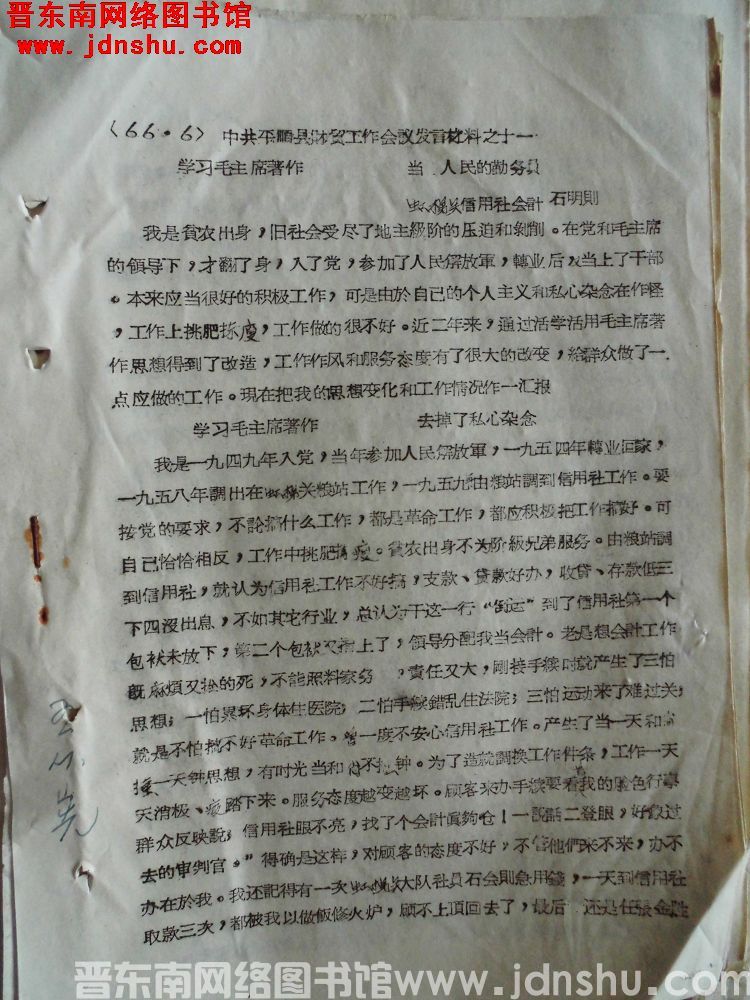 晋东南网络图书馆
www.jdnshu.com
〈66.6〉 中共平顺县财贸工作会议发言材料之十一
学习毛主席著作 当 人民的勤务员
信用社会計 石明則
我是貧农出身，旧社会受尽了地主級阶的压迫和剝削。在党和毛主席
的領导下，才翻了身，入了党，参加了人民觧放軍，轉业后又当上了干部
。本来应当很好的积极工作，可是由於自己的个人主义和私心杂念在作怪
，工作上挑肥拣瘦，工作做的很不好。近二年来，通过活学活用毛主席著
作思想得到了改造，工作作风和服务态度有了很大的改变，給群众做了一
点应做的工作。現在把我的思想变化和工作情况作一汇报
学习毛主席著作 去掉了私心杂念
我是一九四九年入党，当年参加人民觧放軍，一九五四年轉业囬家，
一九五八年調出在 关粮站工作，一九五九由粮站調到信用社工作。要
按党的要求，不論搞什么工作，都是革命工作，都应积极把工作搞好。可
自己恰恰相反，工作中挑肥拣瘦。貧农出身不为阶級兄弟服务。由粮站調
到信用社，就认为信用社工作不好搞，支款、貸款好办，收貸、存款低三
下四沒出息，不如其它行业，总认为干这一行“倒运”到了信用社第一个
包袱未放下，第二个包袱又揹上了，領导分配我当会計。老是想会計工作
旣麻煩又拴的死，不能照料家务 ，責任又大，剛接手續时就产生了三怕
思想；一怕累坏身体住医院；二怕手續錯乱住法院；三怕运动来了难过关；
就是不怕搞不好革命工作。曾一度不安心信用社工作。产生了当一天和尚
撞一天钟思想，有时光当和 不 钟。为了造就調換工作件条，工作一天
天消极、疲踏下来。服务态度越变越坏。顾客来办手續要看我的脸色行事
群众反映說；信用社眼不亮，找了个会計眞夠仓！一說話二登眼，好像过
去的审判官。”得确是这样，对顾客的态度不好，不管他們来不来，办不
办在於我。我还記得有一次 大队社員石会則急用錢，一天到信用社
取款三次，都被我以做飯修火炉，顾不上頂回去了，最后 还是在張金
晋东南网络图书馆www.jdnshu.com